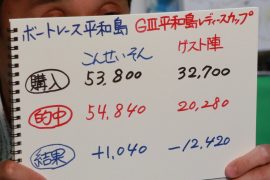 ボートレース平和島 GⅢ平和島レディースカップ
こんせいそん ゲスト陣
購入 53,800 32,700
的中 54,840 20,280
結果 +1,040 -12,420